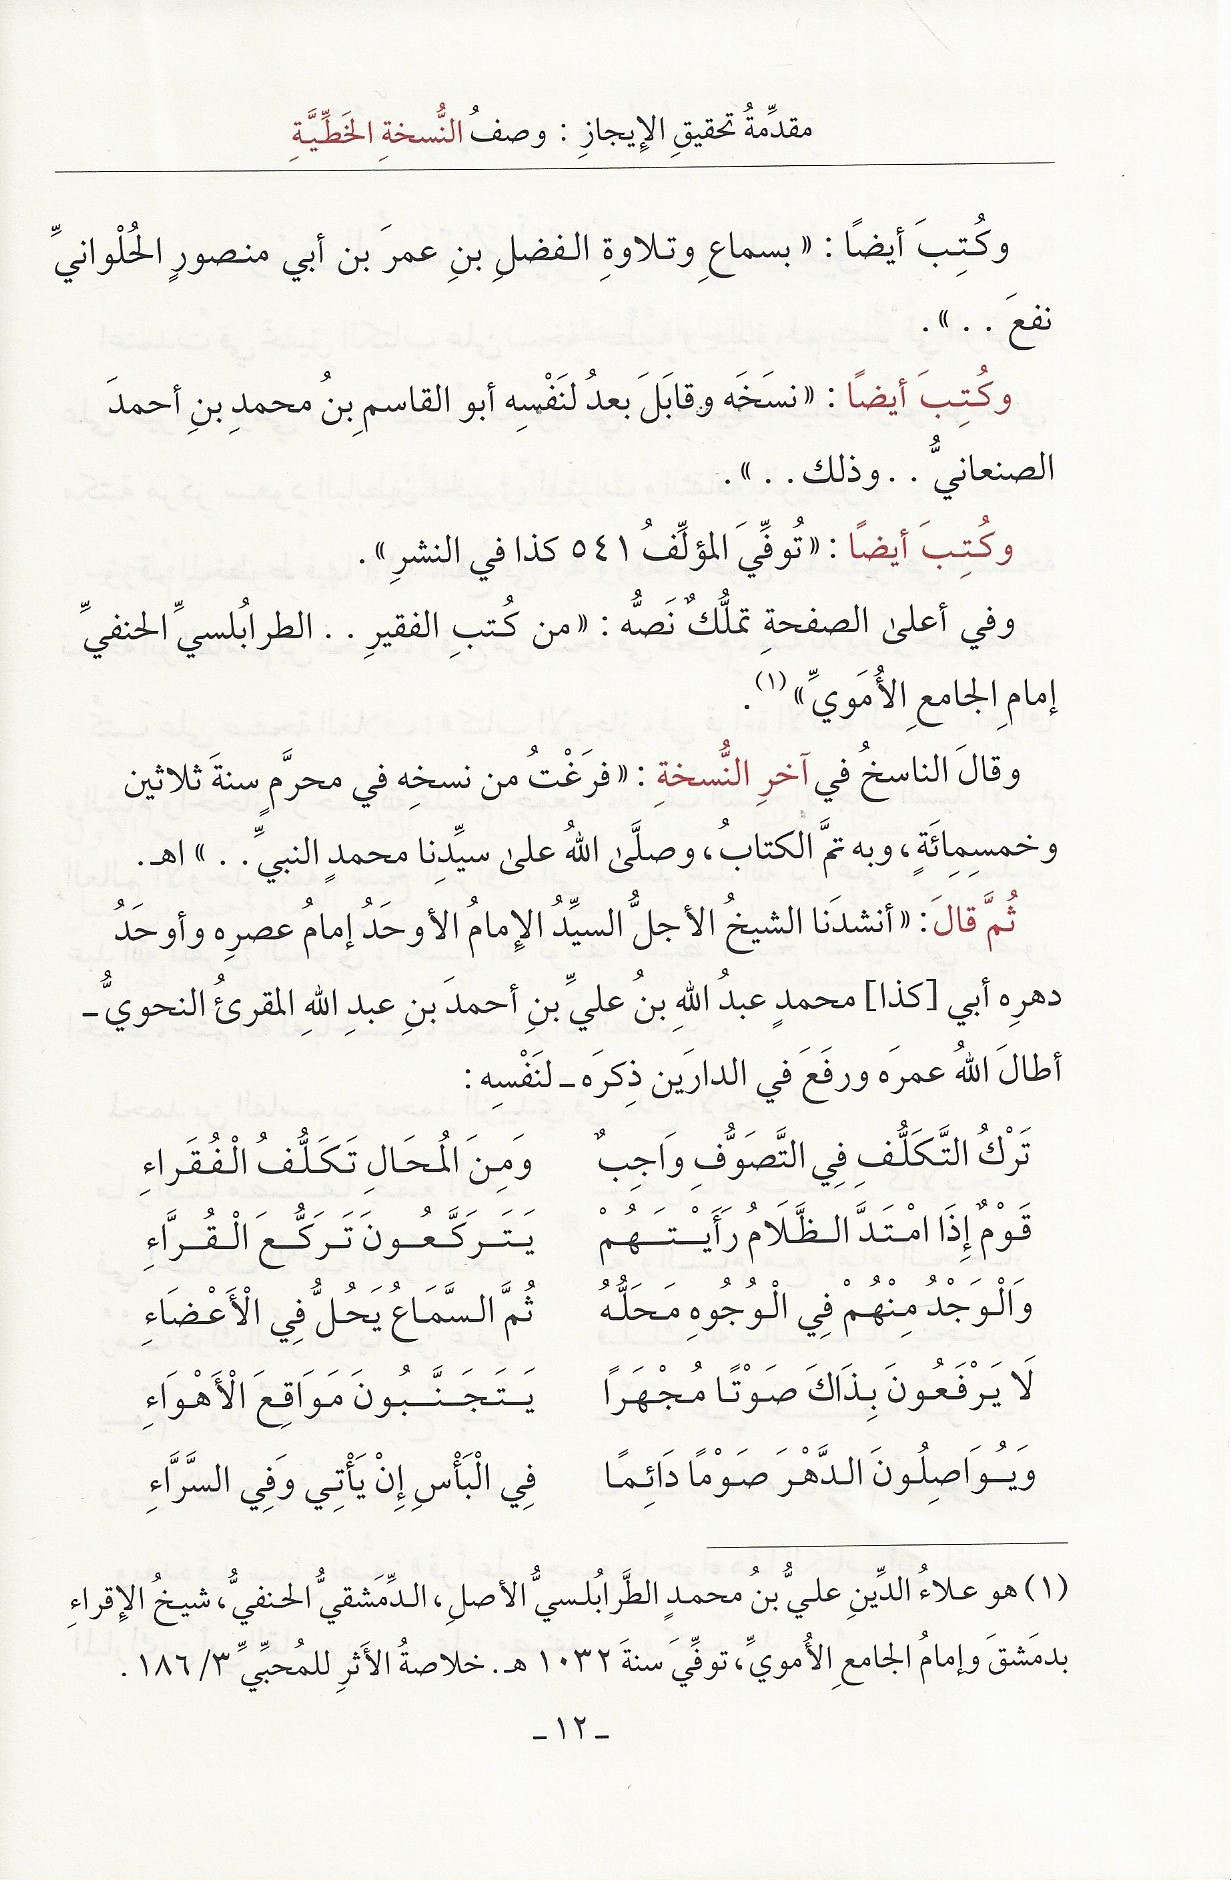 مقدِّمةُ تحقيقِ الإِيجازِ : وصفُ النُّسخةِ الخَطِّيَّةِ
وكُتِبَ أيضًا : « بسماعِ وتلاوةِ الفضلِ بنِ عمرَ بن أبي منصورٍ الحُلْوانيِّ
نفعَ . . » .
وكُتِبَ أيضًا : « نسَخَه وقابَلَ بعدُ لنَفْسِه أبو القاسمِ بنُ محمدِ بنِ أحمدَ
الصنعانيُّ . . وذلك . . » .
وكُتِبَ أيضًا : « تُوفِّيَ المؤلِّفُ ٥٤١ كذا في النشرِ » .
وفي أعلىٰ الصفحةِ تملُّكٌ نَصُّه : « من كُتبِ الفقيرِ . . الطرابُلسيِّ الحنفيِّ
إمامِ الجامعِ الأُمَويِّ » (١) .
وقالَ الناسخُ في آخرِ النُّسخةِ : « فرَغْتُ من نسخِه في محرَّمٍ سنةَ ثلاثين
وخمسِمِائَةٍ ، وبه تمَّ الكتابُ ، وصلَّىٰ اللهُ علىٰ سيِّدِنا محمدٍ النبيِّ . . » اهـ .
ثُمَّ قالَ : « أنشدَنا الشيخُ الأجلُّ السيِّدُ الإِمامُ الأوحَدُ إمامُ عصرِه وأوحَدُ
دهرِه أبي [كذا] محمدٍ عبدُ اللهِ بنُ عليِّ بنِ أحمدَ بنِ عبدِ اللهِ المقرئُ النحويُّ ـ
أطالَ اللهُ عمرَه ورفَعَ في الدارَين ذِكرَه ـ لنَفْسِه :
تَرْكُ التَّكَلُّفِ فِي التَّصَوُّفِ وَاجِبٌ وَمِنَ الْمُحَالِ تَكَلُّفُ الْفُقَراءِ
قَوْمٌ إِذَا امْتَدَّ الظَّلَامُ رَأَيْتَهُمْ يَتَرَكَّعُونَ تَرَكُّعَ الْقُرَّاءِ
وَالْوَجْدُ مِنْهُمْ فِي الْوُجُوهِ مَحَلُّهُ ثُمَّ السَّمَاعُ يَحُلُّ فِي الْأَعْضَاءِ
لَا يَرْفَعُونَ بِذَاكَ صَوْتًا مُجْهَرًا يَتَجَنَّبُونَ مَوَاقِعَ الْأَهْوَاءِ
وَيُوَاصِلُونَ الدَّهْرَ صَوْمًا دَائِمًا فِي الْبَأْسِ إِنْ يَأْتِي وَفِي السَّرَّاءِ
(١) هو علاءُ الدِّينِ عليُّ بنُ محمدٍ الطَّرابُلسيُّ الأصلِ ، الدِّمَشقيُّ الحنفيُّ ، شيخُ الإِقراءِ
بدمَشقَ وإمامُ الجامعِ الأُمويِّ ، توفِّيَ سنةَ ١٠٣٢ هـ . خلاصةُ الأثَرِ للمُحبِّيِّ ٣/ ١٨٦ .
ـ ١٢ ـ